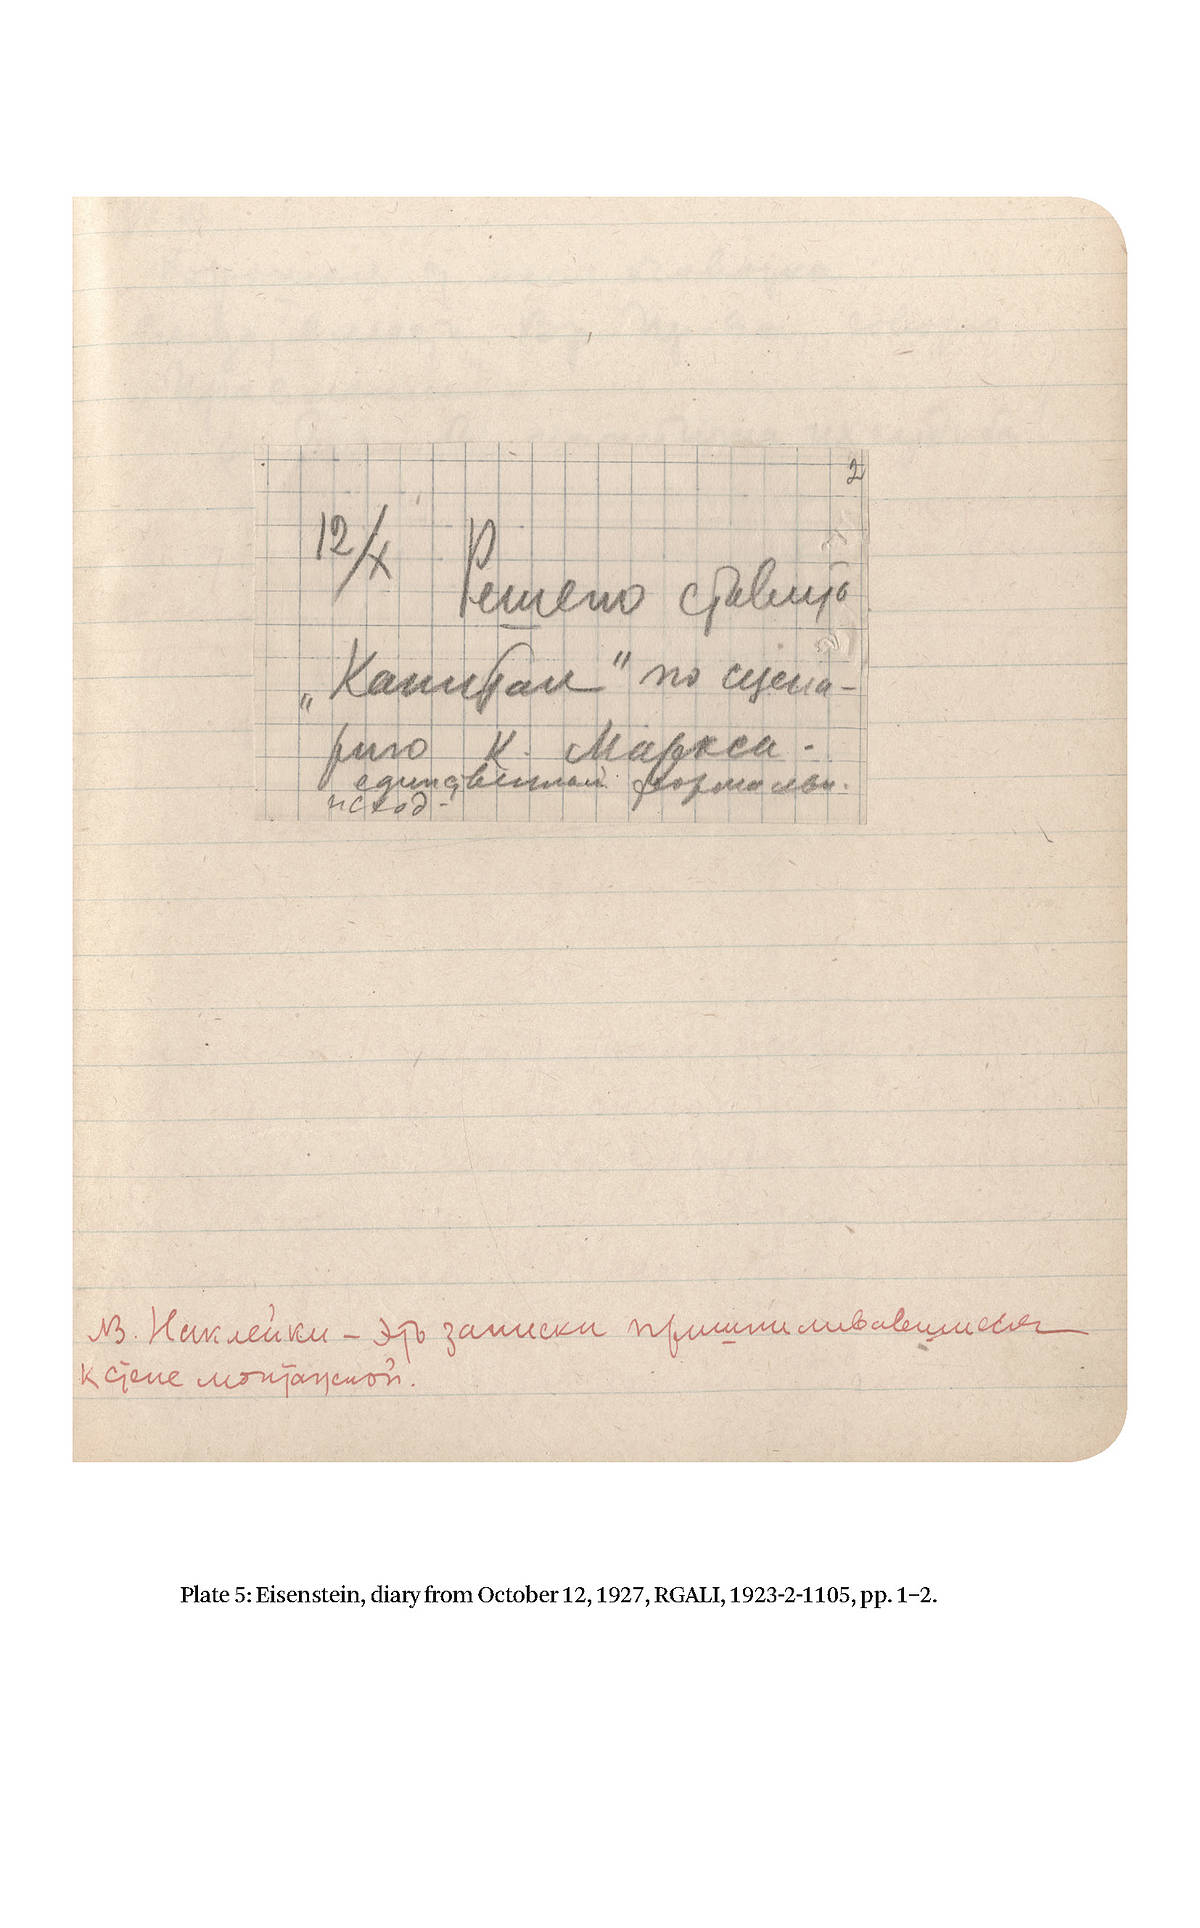 2
12/X Решено ставить
„Капитал" по сцена-
рию К. Маркса -
единственный формальн.
исход-
NB. Наклейки – это записки пришпиливавшиеся
к стене монтажной.
Plate 5: Eisenstein, diary from October 12, 1927, RGALI, 1923-2-1105, pp. 1–2.